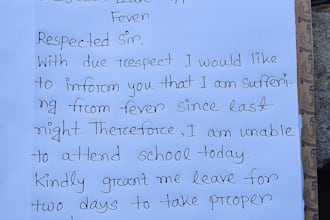 Fever
Respected Sir,
With due respect I would like
to inform you that I am sufferi-
ng from fever since last
night. Therefore, I am unable
to attend school today.
Kindly grant me leave for
two days to take proper